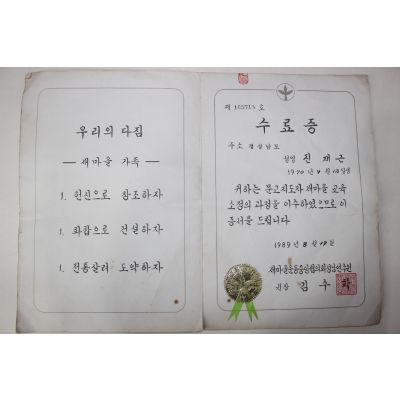 우리의 다짐
— 새마을 가족 —
1. 헌신으로 창조하자
1. 화합으로 건설하자
1. 전통살려 도약하자
제 호
수료증
주소 경상남도
성명 진재근
1970년 7월 생
귀하는 문고지도자 새마을 교육
소정의 과정을 이수하였으므로 이
증서를 드립니다.
1989년 8월 19일
새마을운동중앙협의회
원장 김수학